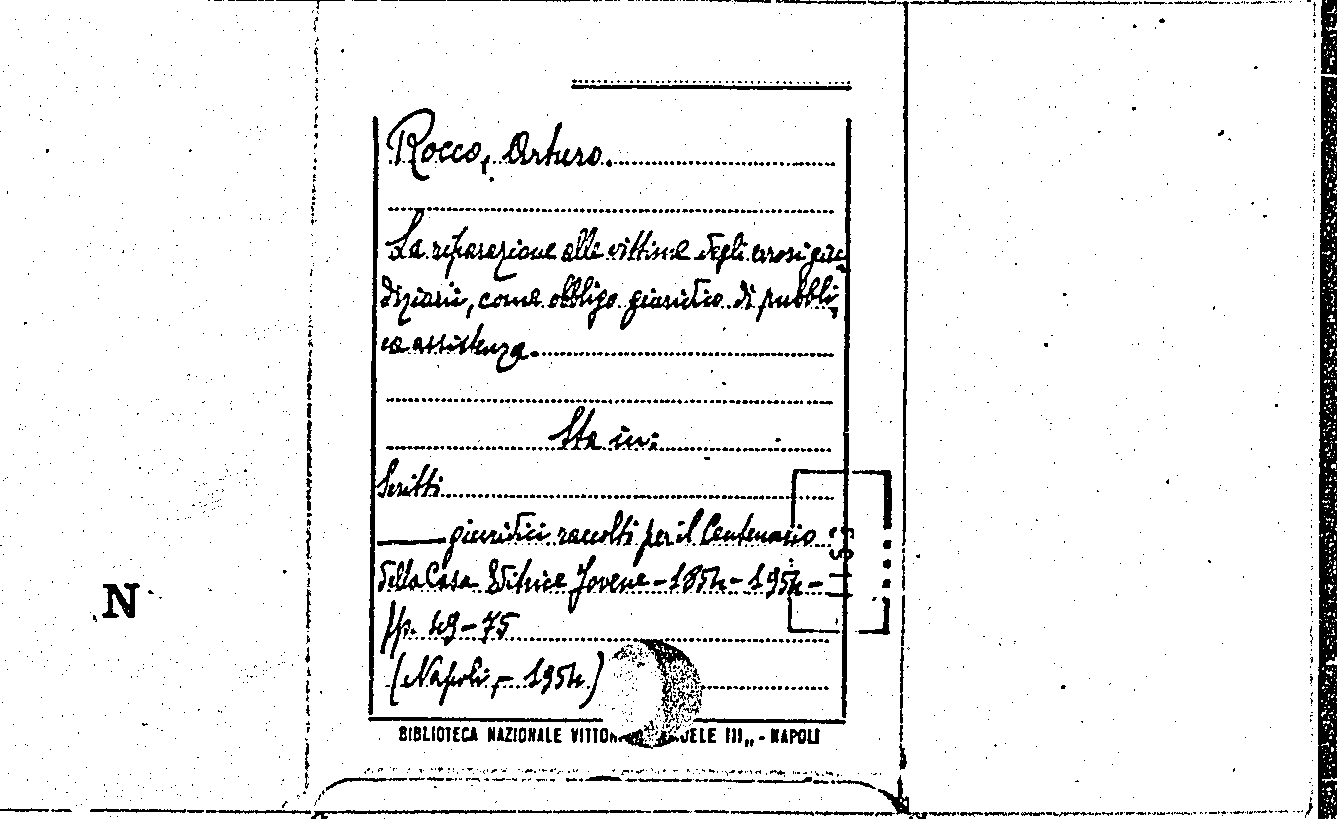 Rocco, Arturo.
La reparazione alle vittime degli errori giu
diziarii, come obbligo giuridico di pubbli-
ca assistenza.
Sta in:
Scritti
giuridici raccolti per il Centenario
della Casa Editrice Jovene - 1854 - 1954 -
pp. 49-75
(Napoli, - 1954)
N
BIBLIOTECA NAZIONALE III„ - NAPOLI